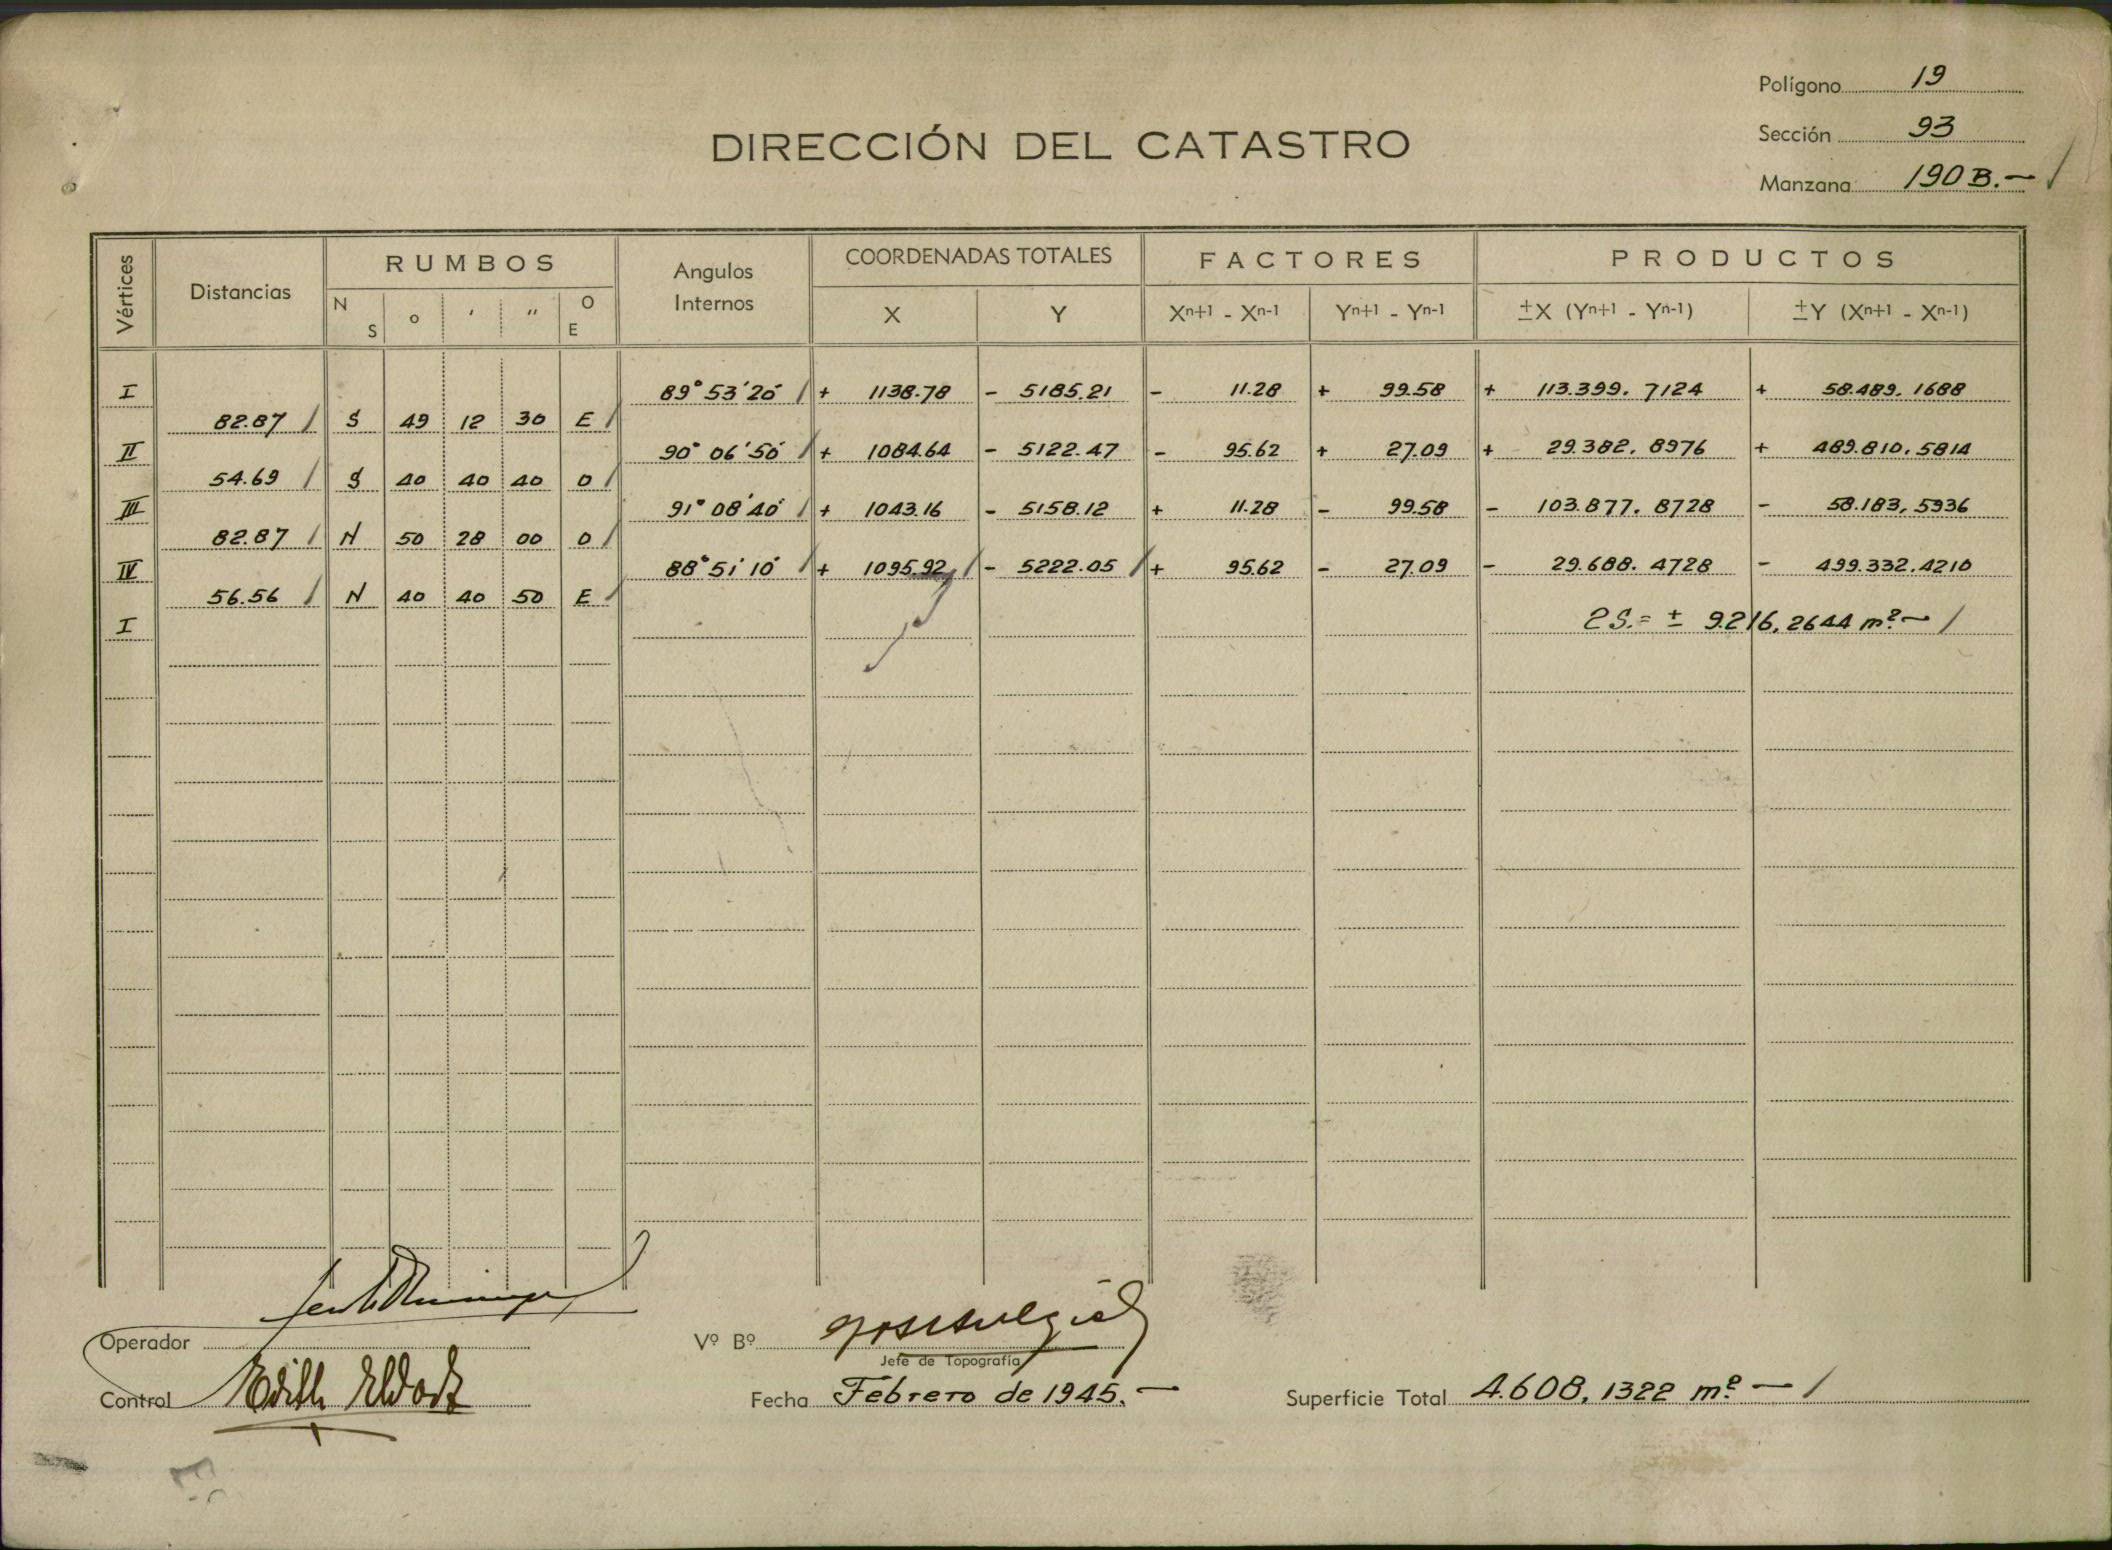 Polígono 19
Sección 93
Manzana 190 B.-
DIRECCIÓN DEL CATASTRO
Vértices Distancias RUMBOS Angulos Internos COORDENADAS TOTALES FACTORES PRODUCTOS
N S o ' " O E X Y Xn+1 - Xn-1 Yn+1 - Yn-1 ±X (Yn+1 - Yn-1) ±Y (Xn+1 - Xn-1)
I 89° 53' 20" + 1138.78 - 5185.21 - 11.28 + 99.58 + 113.399.7124 + 58.489.1688
82.87 S 49 12 30 E
II 90° 06' 50" + 1084.64 - 5122.47 - 95.62 + 27.09 + 29.382.8976 + 489.810.5814
54.69 S 40 40 40 O
III 91° 08' 40" + 1043.16 - 5158.12 + 11.28 - 99.58 - 103.877.8728 - 58.183,5936
82.87 N 50 28 00 O
IV 88° 51' 10" + 1095.92 - 5222.05 + 95.62 - 27.09 - 29.688.4728 - 499.332.4210
56.56 N 40 40 50 E
I 2S.= ± 9.216,2644 m².-
Operador
Vº Bº
Jefe de Topografía
Control Edith
Fecha Febrero de 1945.-
Superficie Total 4.608,1322 m².-